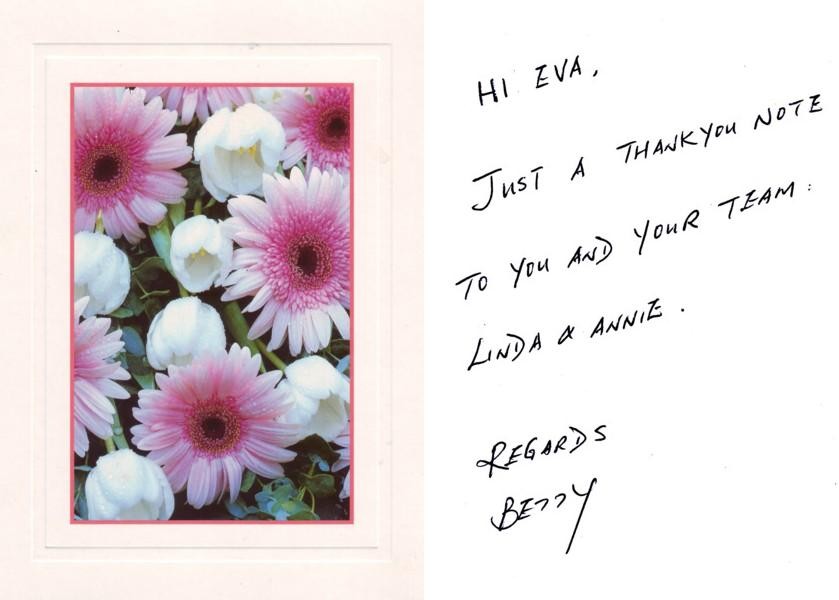 HI EVA,
JUST A THANKYOU NOTE
TO YOU AND YOUR TEAM:
LINDA & ANNIE.
REGARDS
BETTY